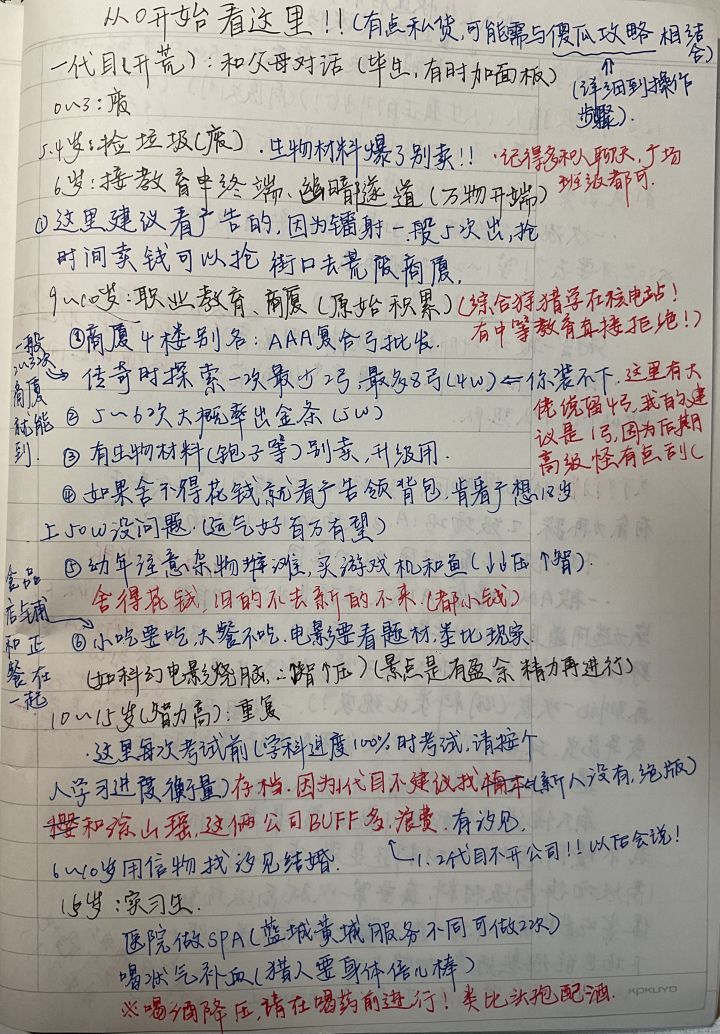 从0开始看这里!!(有点私货,可能需与傻瓜攻略 相结合)
一代目(开荒):和父母对话(毕生,有时加面板)
(详细到操作步骤).
0~3:废
3.4岁:捡垃圾(废).生物材料爆了别卖!!
·记得多和人聊天,广场班级都可.
6岁:接教育中终端、幽暗隧道(万物开端)
①这里建议看广告的,因为镭射一般5次出,抢
时间卖钱可以抢 街口去荒废商厦.
9~10岁:职业教育、商厦(原始积累)
(综合狩猎学在核电站!有中等教育直接拒绝!)
①商厦4楼别名:AAA复合弓批发.
一般2~3次商厦就能到!
传奇时探索一次最少2弓,最多8弓(4w)←你装不下.
这里有大佬说囤4弓,我的建议是1弓,因为后期高级怪有回到(
②5~6次大概率出金条(5W)
③有生物材料(孢子等)别卖,升级用.
④如果舍不得花钱就看广告领背包,肯看广想18岁
上50W没问题.(运气好百万有望)
⑤幼年注意杂物摊滩,买游戏机和鱼(↓压↑智).
舍得花钱,旧的不去新的不来.(都小钱)
食品店铺和正餐在一起
⑥小吃要吃,大餐不吃.电影要看题材.类比现实.
(如科幻电影烧脑,∴智↑压)(景点是有盈余精力再进行)
10~15岁(智力高):重复
·这里每次考试前(学科进度100%时考试.请按个
人学习进度衡量)存档.因为1代目不建议找(新人没有,绝版)
和涂山瑶,这俩公司BUFF多.浪费.有汐见.
1.2代目不开公司!!以后会说!
6~10岁用信物找汐见结婚.
15岁:实习生.
医院做SPA(蓝城黄城服务不同可做2次)
喝状气补血(猎人要身体倍儿棒)
※喝酒降压,请在喝药前进行!类比头孢配酒.
KOKUYO